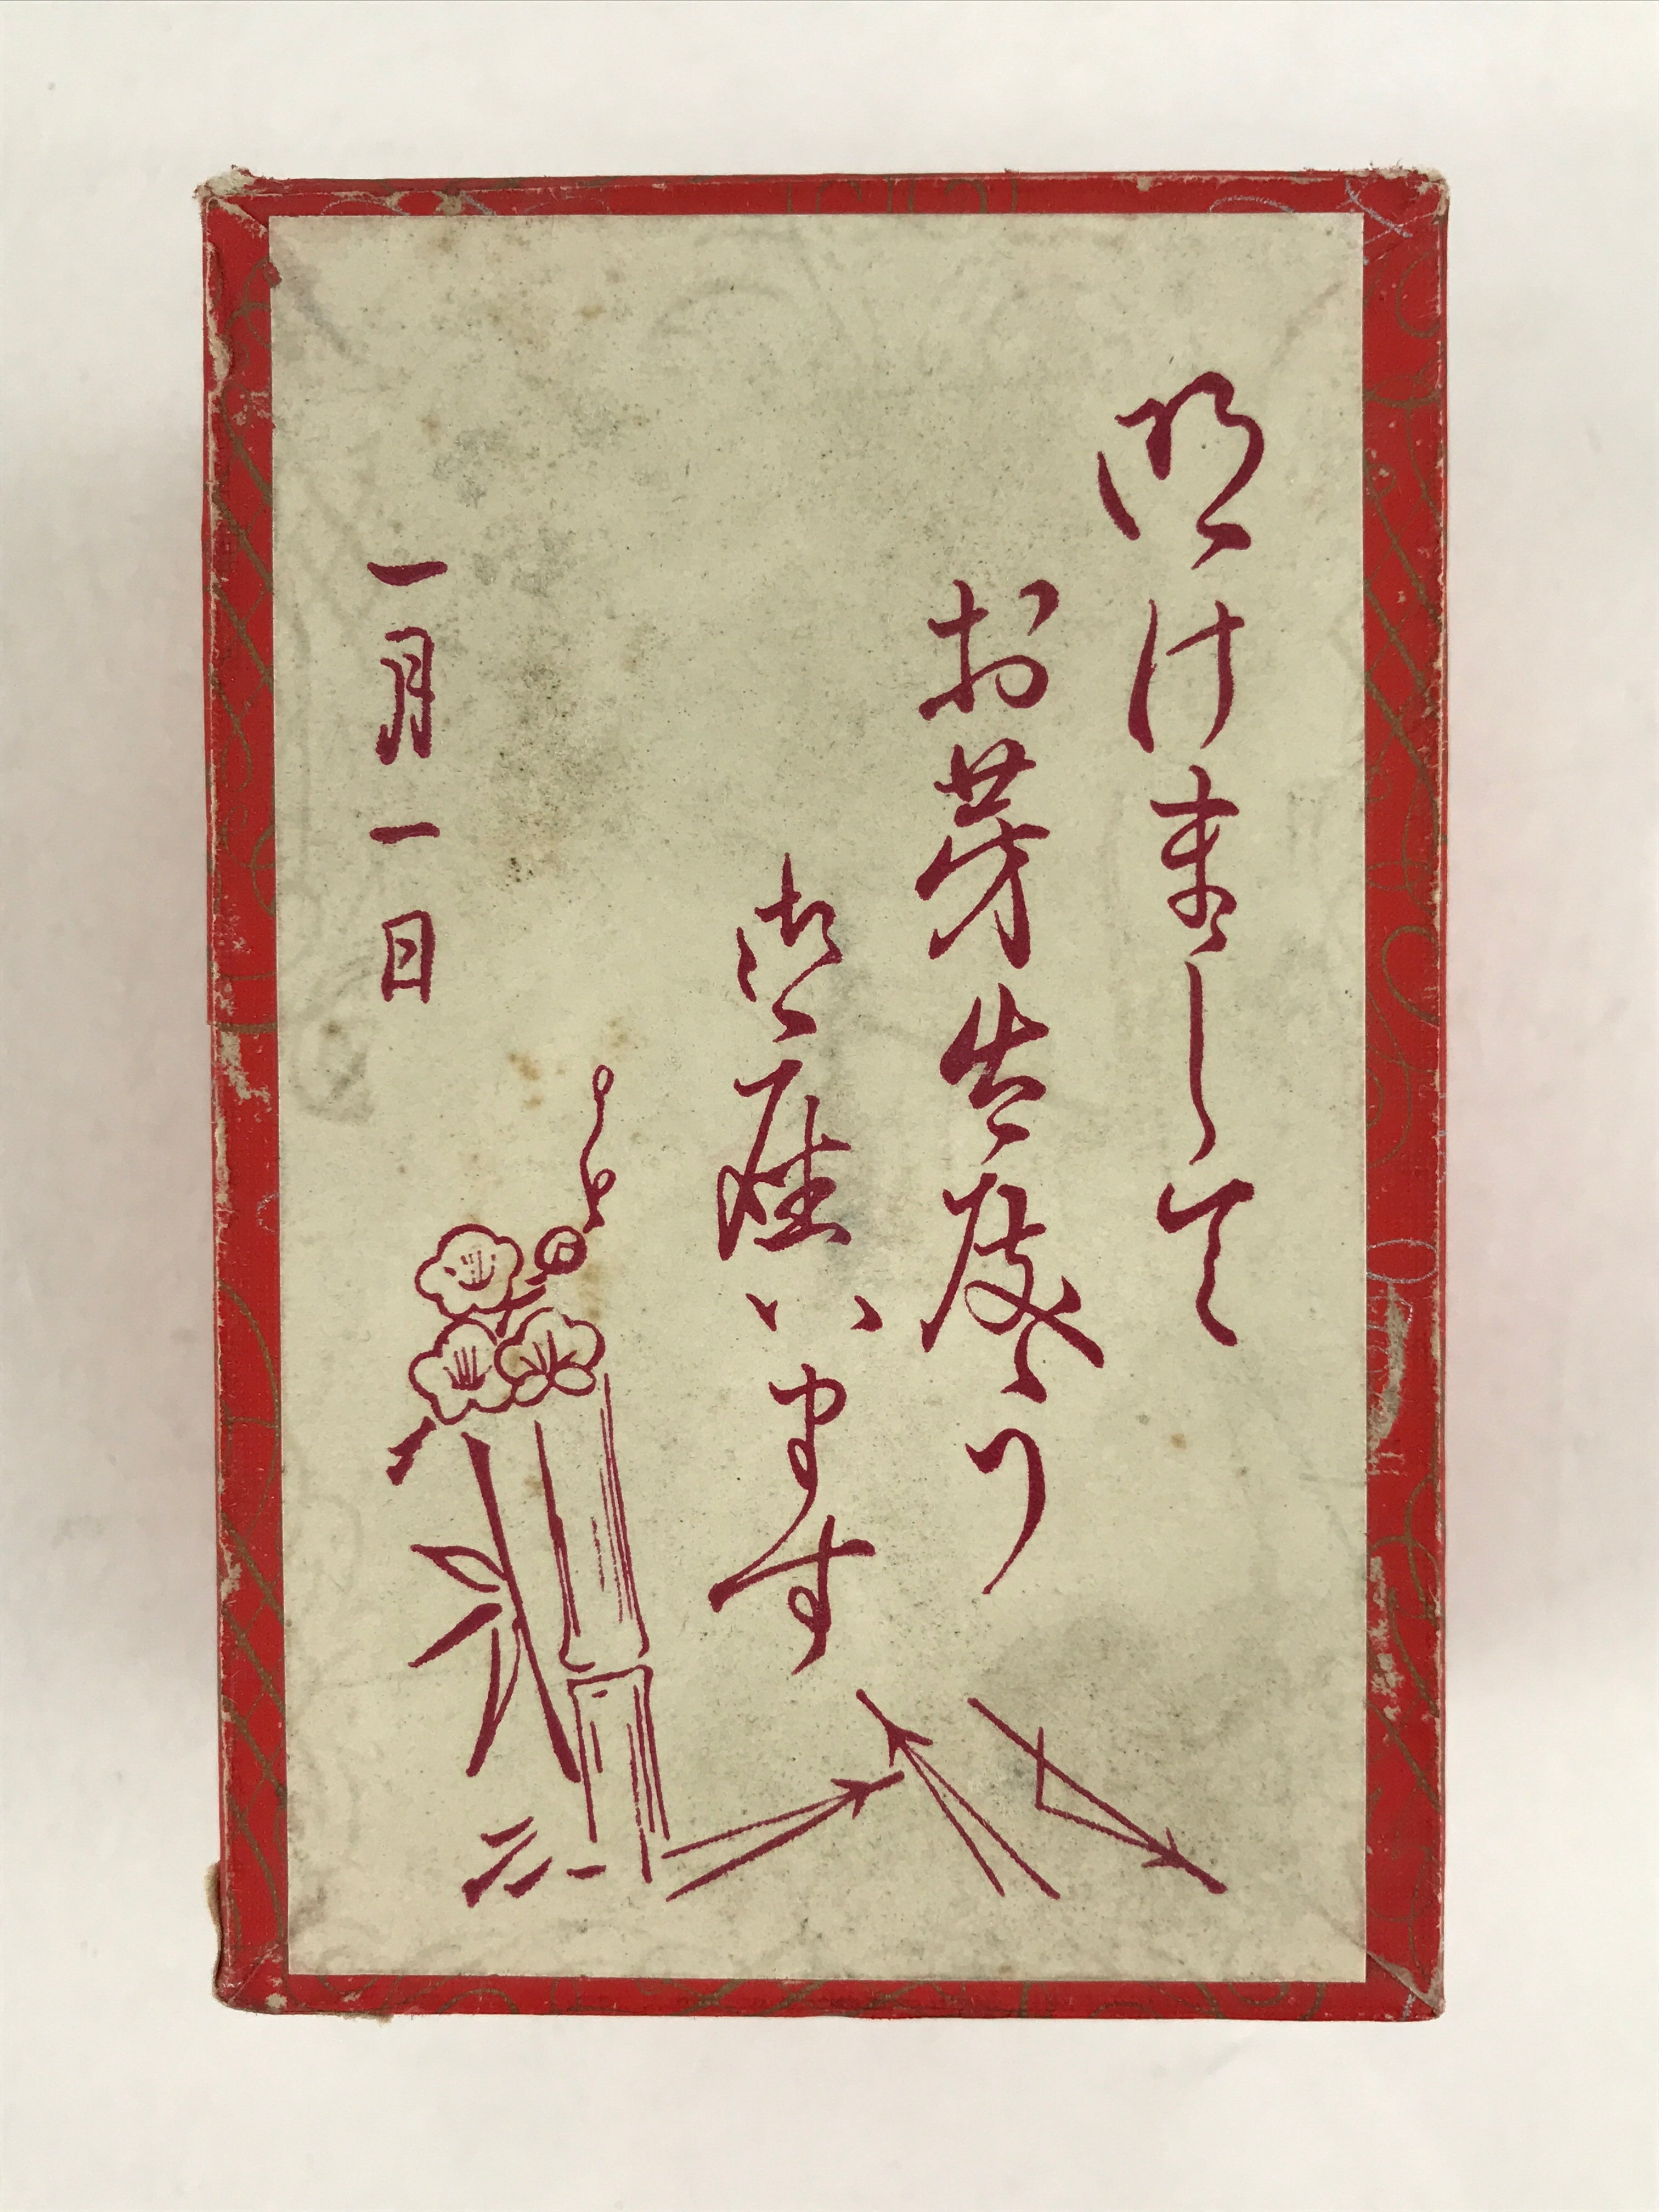 明けまして
お芽出度う
御座います
一月一日